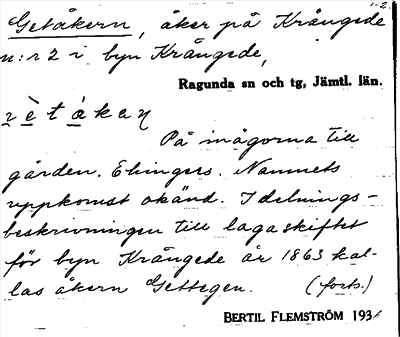 1-2.
Getåkern, åker på Krångede
n:r 2 i byn Krångede,
Ragunda sn och tg, Jämtl. län.
På inägorna till
gården. Elingers. Namnets
uppkomst okänd. I delnings-
beskrivningen till lagaskiftet
för byn Krångede år 1863 kal-
las åkern Gettegen. (forts.)
BERTIL FLEMSTRÖM 193